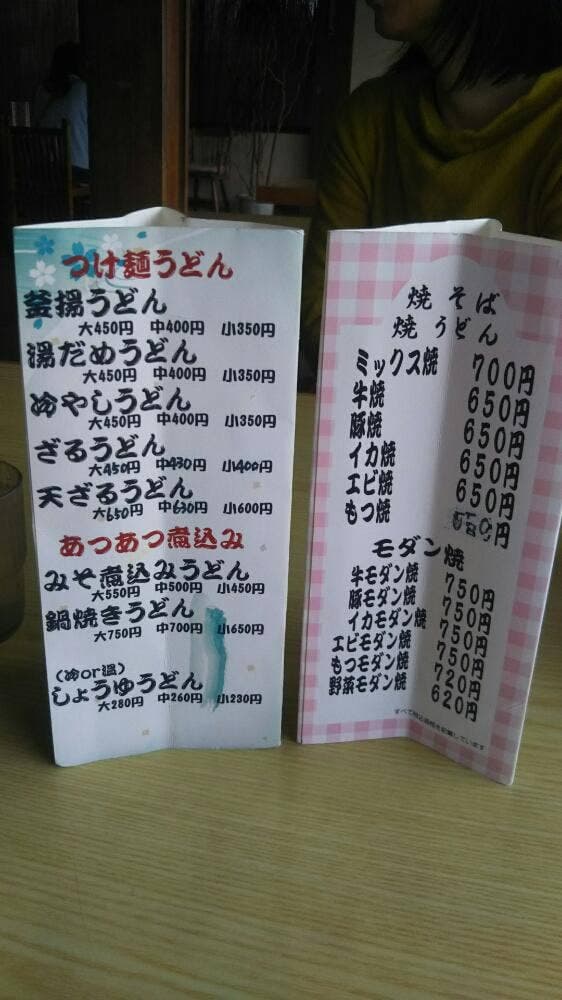 つけ麺うどん
釜揚うどん
大450円 中400円 小350円
湯だめうどん
大450円 中400円 小350円
冷やしうどん
大450円 中400円 小350円
ざるうどん
大450円 中430円 小400円
天ざるうどん
大650円 中630円 小600円
あつあつ煮込み
みそ煮込みうどん
大550円 中500円 小450円
鍋焼きうどん
大750円 中700円 小650円
(冷or温)
しょうゆうどん
大280円 中260円 小230円
焼そば
焼うどん
ミックス焼 700円
牛焼 650円
豚焼 650円
イカ焼 650円
エビ焼 650円
もつ焼 円
モダン焼
牛モダン焼 750円
豚モダン焼 750円
イカモダン焼 750円
エビモダン焼 750円
もつモダン焼 720円
野菜モダン焼 620円
すべて税込価格を記載しています